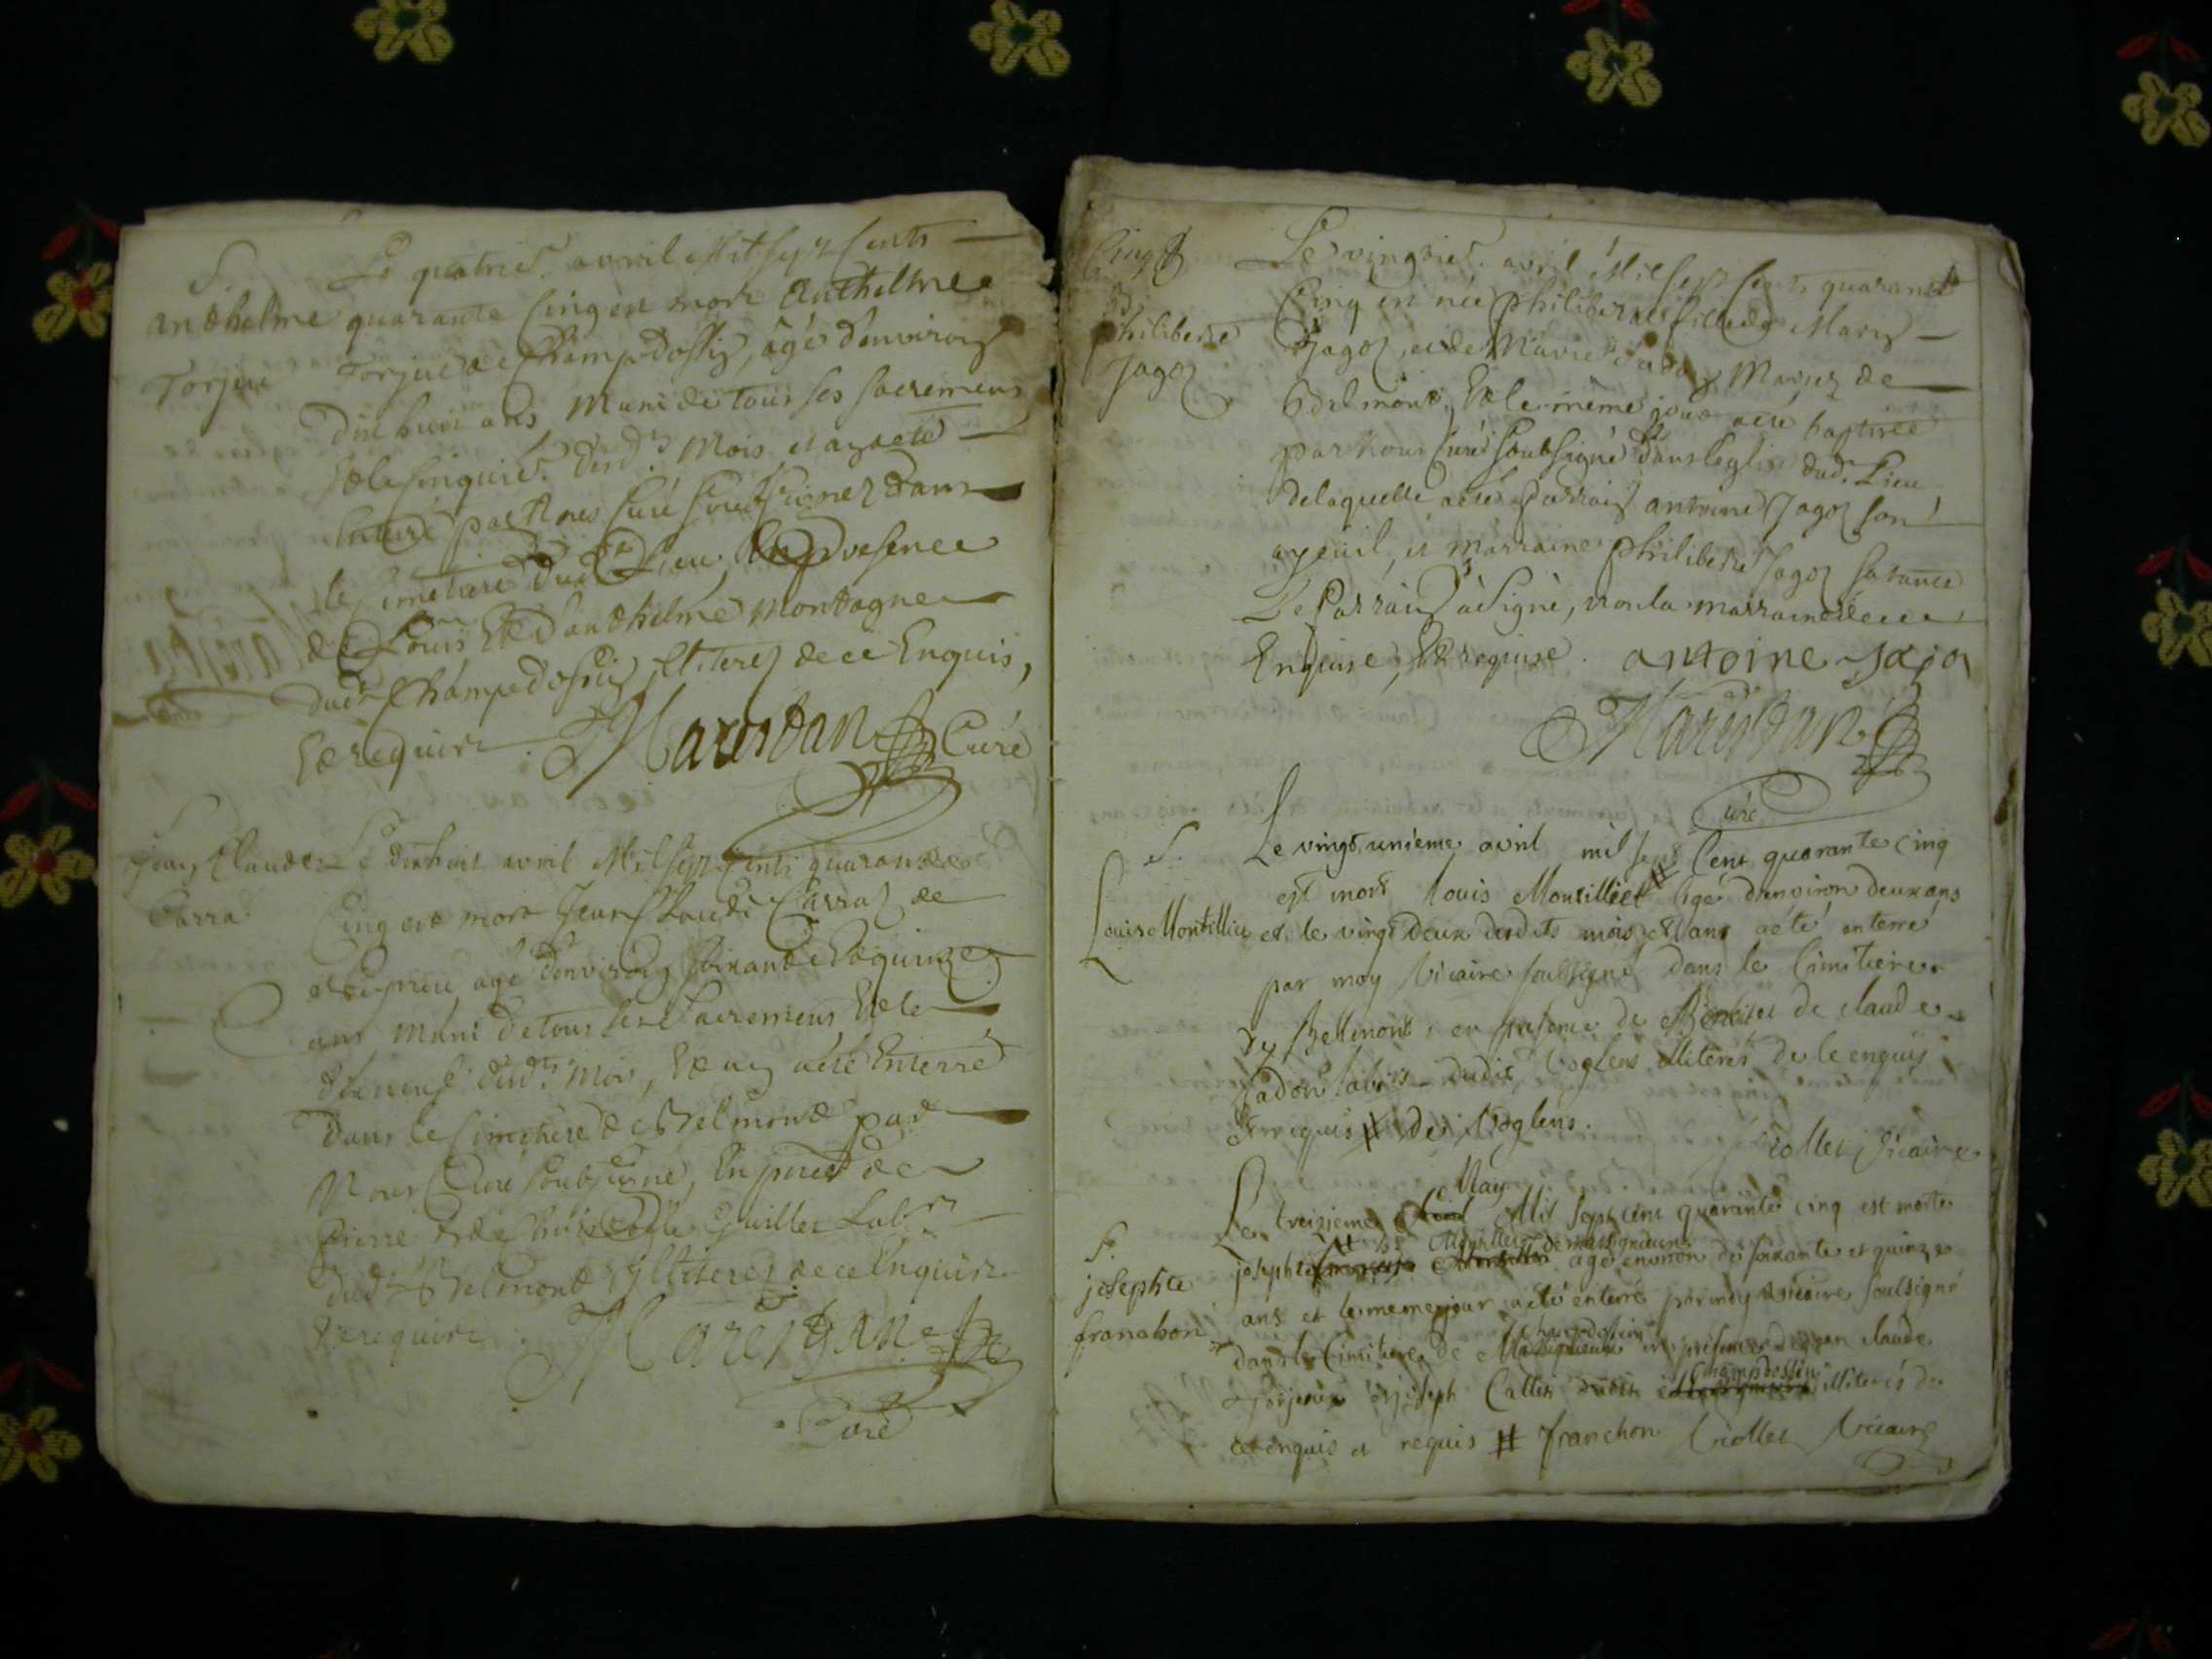 S.
anthelme
Torjeu
Le quatrie. avvril Mil Sept Cents
quarante Cinq est mort Anthelme
Torjeu de Champdossin, âgé d'environ
dix huit ans muni de tous ses sacremens
Et le cinquie. desd. mois et an a eté
Enterré par Nous Curé soubsignez dans
le Cimetiere dud. Lieu, En presence
de Louis Et d'anthelme Montagne
dud. Champdossin illiterez de ce Enquis,
Et requis. Marestan Curé
Jean Claude
Carra
Le dixhuit avril Mil Sept Cents quarante
Cinq est mort Jean Claude Carraz de
agé d'environ soixante Et quinze
ans muni de tous ses Sacremens Et le
dix neuf dud. Mois, Et an a eté Enterré
Dans le Cimetiere de Belmont par
Nous Curé soubsigné, En pnce de
Pierre Et de Guillet Lab.rs
dud. Belmont illiterez de ce Enquis
Et requis. Marestan
Curé
Philiberte
Jagoz
Le vingtie. avril Mil Sept Cents quarante
Cinq est née Philiberte fille de Marin
Jagoz, et de Marie Mariez de
Belmont, Et le même jour a eté baptisée
par Nous Curé soubsigné dans l'eglise dud. Lieu
de laquelle a eté Parrain antoine Jagoz son
ayeuil, et marraine philiberte Jagoz sa tante
Le Parrain a signé, non la marraine de ce
Enquise, Et requise. antoine Jajoz
Marestan
Curé
S.
Louis Montillier
Le vingt unieme avril mil sept Cent quarante cinq
est mort louis Montilliet # agé d'environ deux ans
et le vingt deux desdits mois et an a eté enterré
par moy Vicaire soubsigné dans le Cimetiere
de Bellmont, en presence de Benoit et de claude
Jadon lab.rs dudit Voglens illiterés de le enquis
Et requis # de Voglens.
Violles Vicaire
S.
josephte
franchon
Le treizieme May Mil Sept cent quarante cinq est morte
josephte # de massignieux agé environ de soixante et quinze
ans et le meme jour a eté enterré par moy Vicaire soulsigné
dans le Cimitiere de Champdossin en presence de jean claude
Torjeux et joseph Callet dudit Champdossin illiterés de
ce enquis et requis # franchon Violles Vicaire